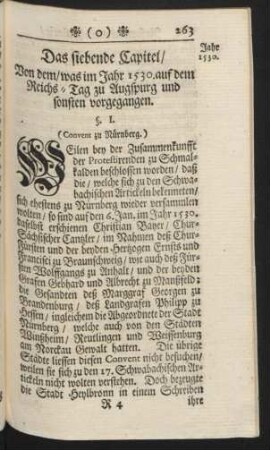 (0) 263
Jahr
1530.
Das siebende Capitel/
Von dem/ was im Jahr 1530. auf dem
Reichs-Tag zu Augspurg und
sonsten vorgegangen.
§. I.
(Convent zu Nürnberg.)
WEilen bey der Zusammenkunfft
der Protestirenden zu Schmal-
kalden beschlossen worden/ daß
die/ welche sich zu den Schwa-
bachischen Articeln bekenneten/
sich ehestens zu Nürnberg wieder versammlen
wolten/ so sind auf den 6. Jan. im Jahr 1530.
daselbst erschienen Christian Bayer/ Chur-
Sächsischer Cantzler/ im Nahmen deß Chur-
Fürsten und der beyden Hertzogen Ernsts und
Francisci zu Braunschweig/ wie auch deß Für-
sten Wolffgangs zu Anhalt/ und der beyden
Grafen Gebhard und Albrecht zu Manßfeld:
die Gesandten deß Marggraf Georgen zu
Brandenburg/ deß Landgrafen Philipp zu
Hessen/ ingleichen die Abgeordnete der Stadt
Nürnberg/ welche auch von den Städten
Winßheim/ Reutlingen und Weissenburg
am Norckau Gewalt hatten. Die übrige
Städte liessen diesen Convent nicht besuchen/
weilen sie sich zu den 17. Schwabachischen Ar-
tickeln nicht wolten verstehen. Doch bezeugte
die Stadt Heylbronn in einem Schreiben
R 4 ihre